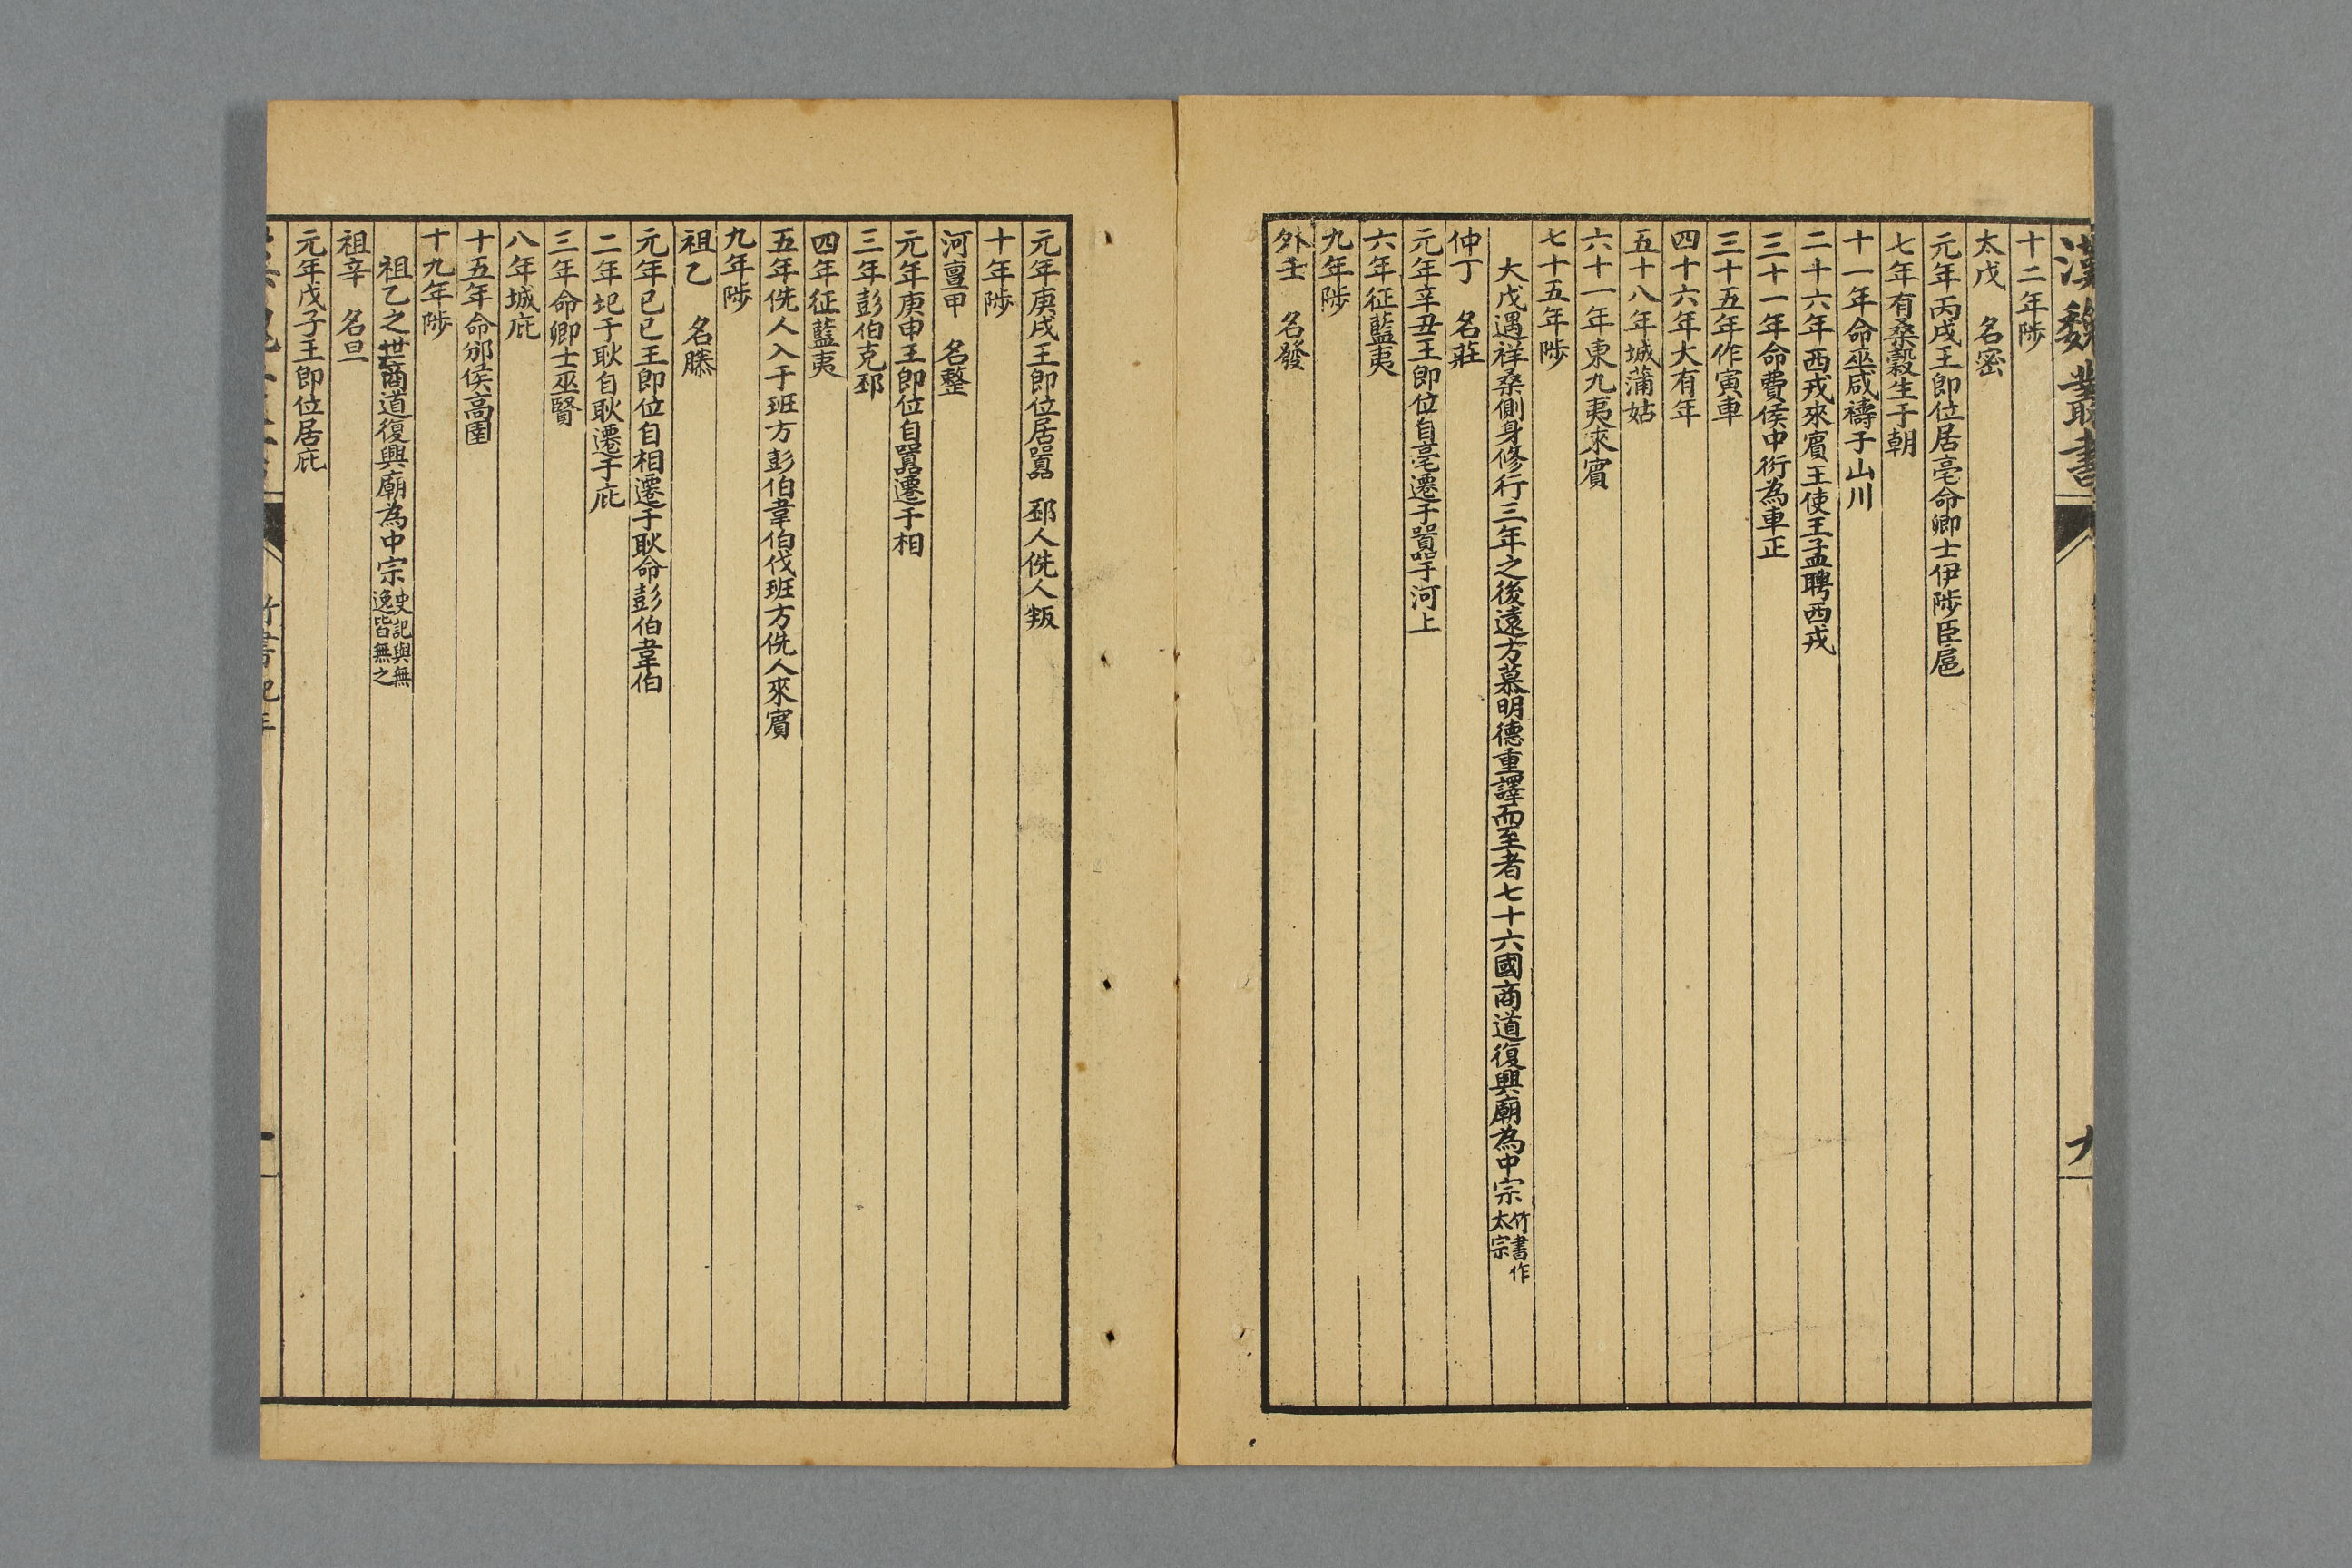 漢魏叢書
十二年陟
太戊　名密
元年丙戌王即位居亳命卿士伊陟臣扈
七年有桑穀生于朝
十一年命巫咸禱于山川
二十六年西戎來賓王使王孟聘西戎
三十一年命費侯中衍為車正
三十五年作寅車
四十六年大有年
五十八年城蒲姑
六十一年東九夷來賓
七十五年陟
大戊遇祥桑側身修行三年之後遠方慕明德重譯而至者七十六國商道復興廟為中宗竹書作太宗
仲丁　名莊
元年辛丑王即位自亳遷于囂于河上
六年征藍夷
九年陟
外壬　名發
元年庚戌王即位居囂　邳人侁人叛
十年陟
河亶甲　名整
元年庚申王即位自囂遷于相
三年彭伯克邳
四年征藍夷
五年侁人入于班方彭伯韋伯伐班方侁人來賓
九年陟
祖乙　名滕
元年已已王即位自相遷于耿命彭伯韋伯
二年圮于耿自耿遷于庇
三年命卿士巫賢
八年城庇
十五年命邠侯高圉
十九年陟
祖乙之世商道復興廟為中宗史記與無逸皆無之
祖辛　名旦
元年戊子王即位居庇
竹書紀年